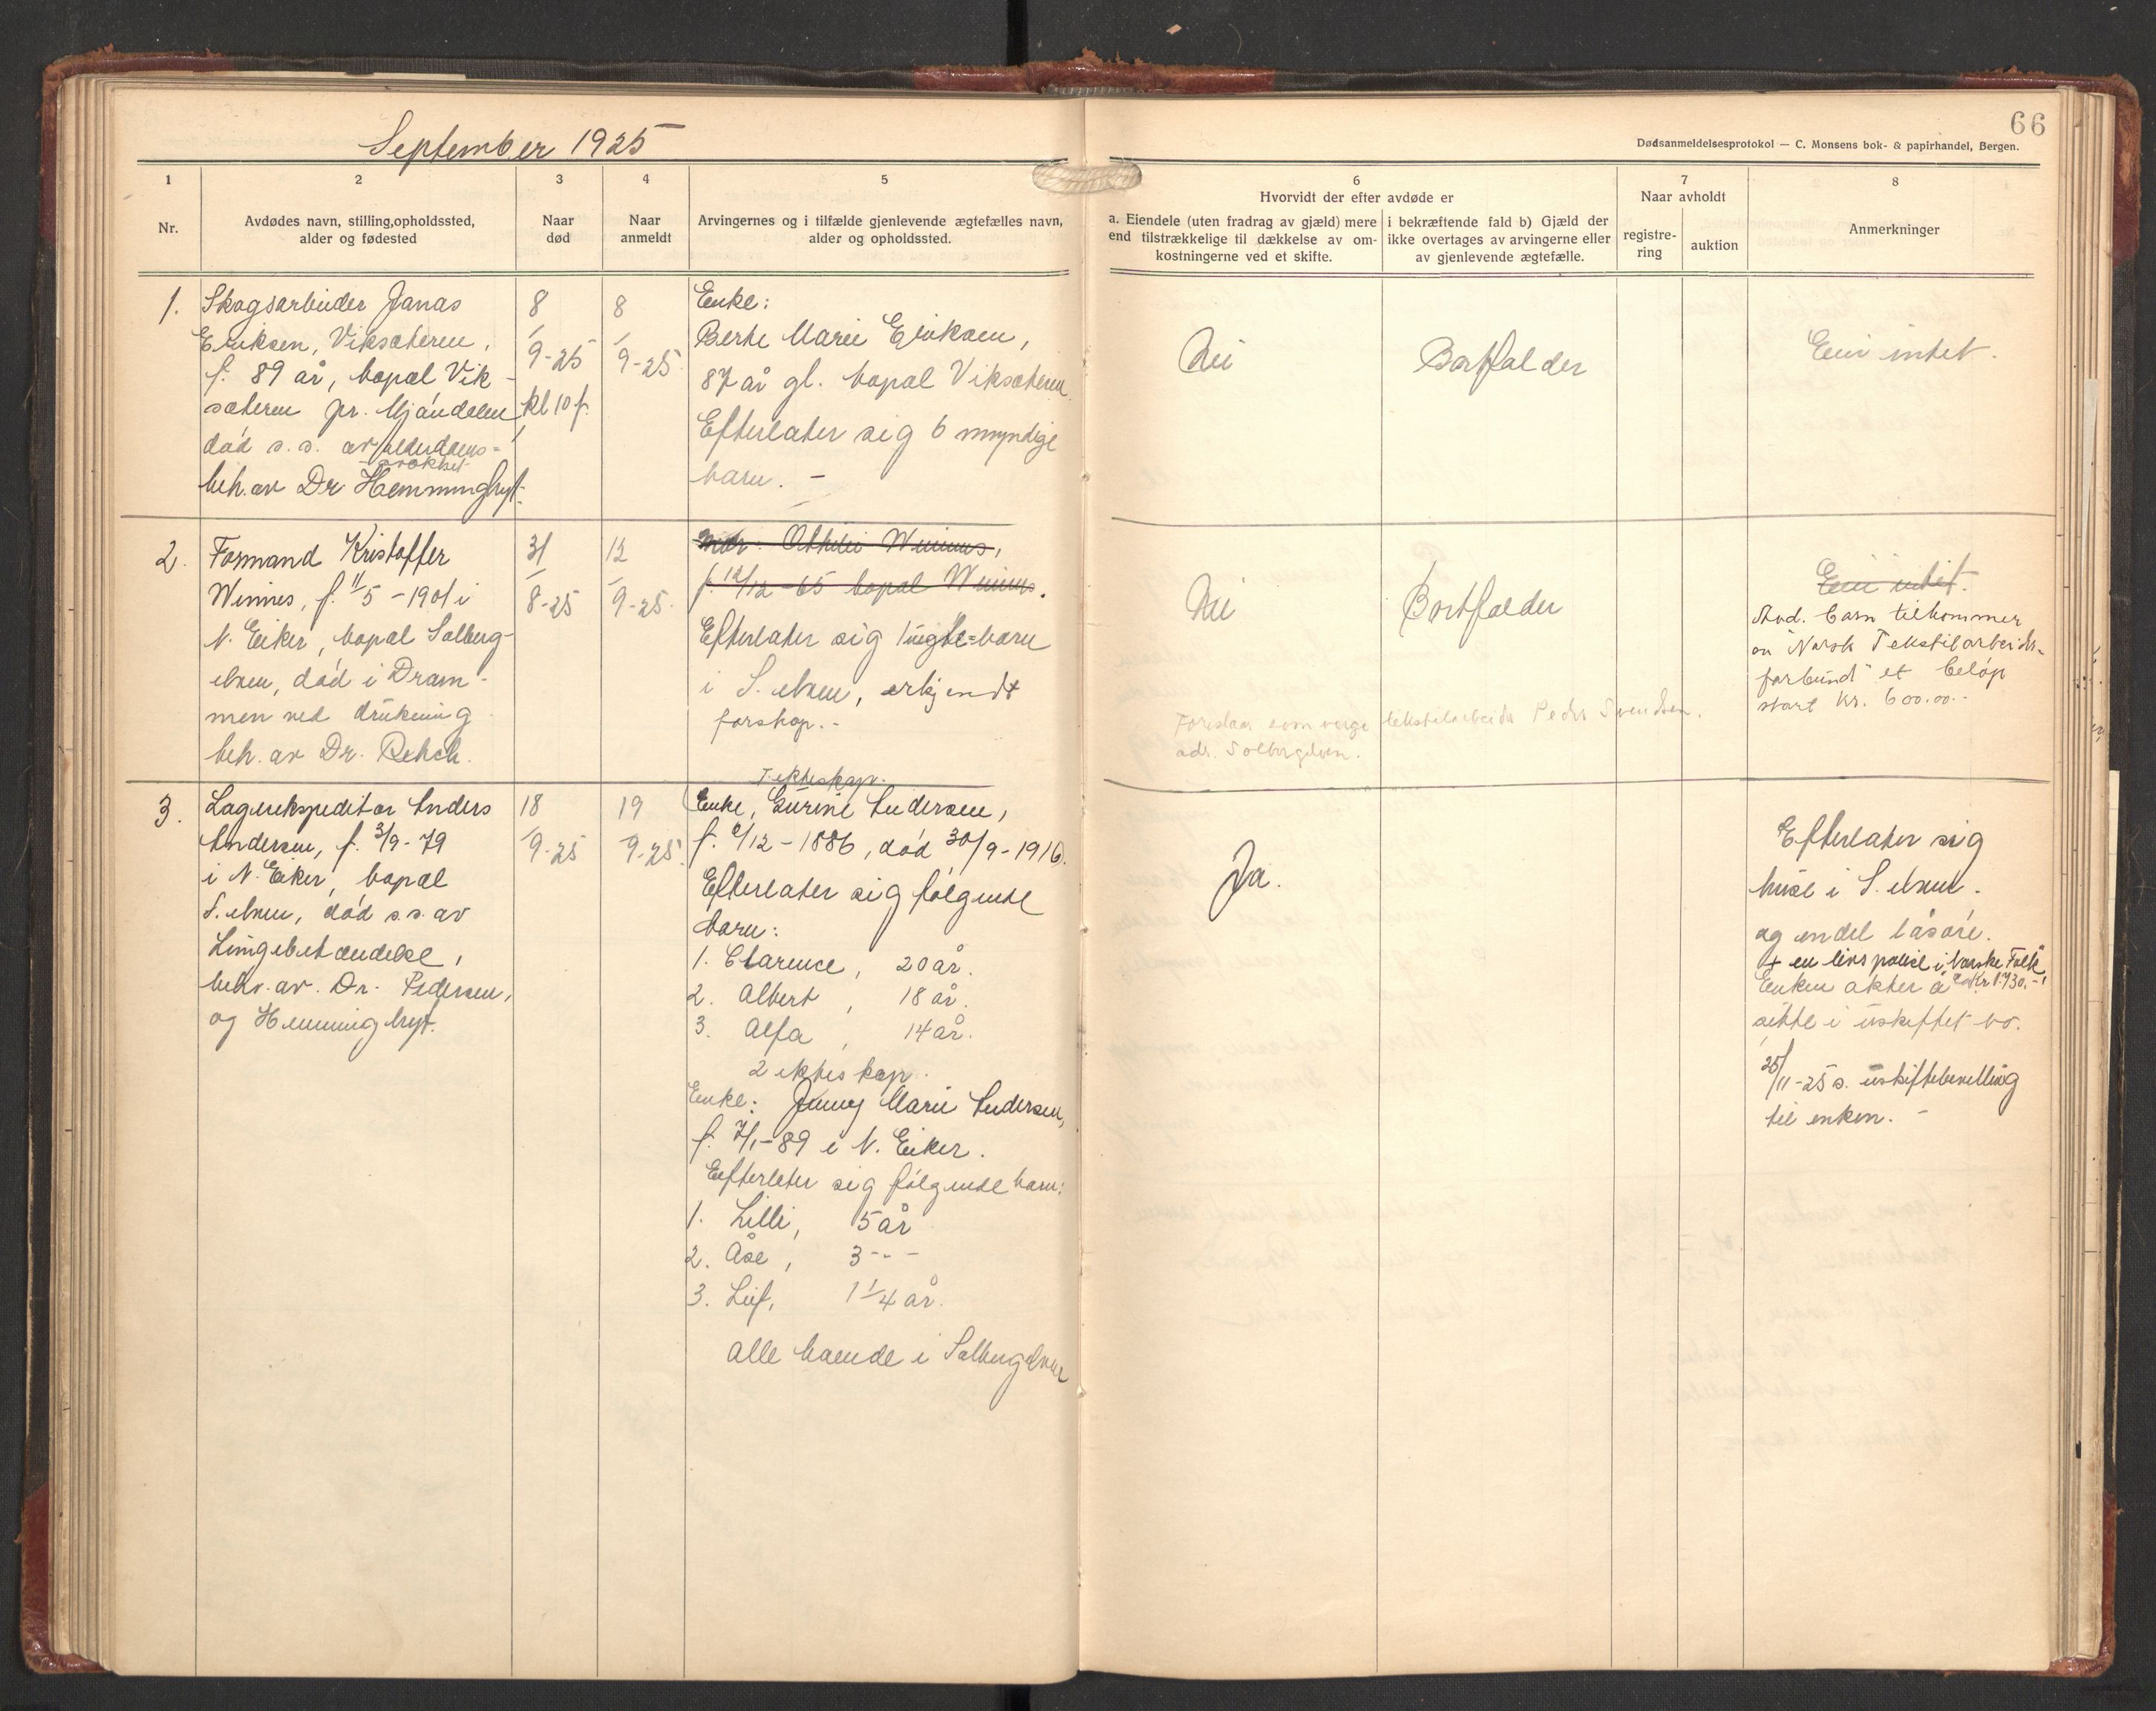 September 1925
66
Dødsanmeldelsesprotokol — C. Monsens bok- & papirhandel, Bergen.
1
Nr.
2
Avdødes navn, stilling, opholdssted,
alder og fødested
3
Naar
død
4
Naar
anmeldt
5
Arvingernes og i tilfælde gjenlevende ægtefælles navn,
alder og opholdssted.
6
Hvorvidt der efter avdøde er
a. Eiendele (uten fradrag av gjæld) mere
end tilstrækkelige til dækkelse av om-
kostningerne ved et skifte.
i bekræftende fald b) Gjæld der
ikke overtages av arvingerne eller
av gjenlevende ægtefælle.
7
Naar avholdt
registre-
ring
auktion
8
Anmerkninger
1.
Skogsarbeider Jonas
Eriksen, Viksæteren,
f. 89 år, bopæl Vik-
sæteren pr. Mjøndalen
død s.s. av alderdoms-
svakhet
beh. av Dr. Hemmingbyt.
8
/
9-25
kl 10 f.
8
/
9-25
Enke:
Berte Marie Eriksen,
87 år gl. bopæl Viksæteren
Efterlater sig 6 myndige
barn. -
Nei
Bortfalder
Eier intet.
2.
Formand Kristoffer
Winnes, f. 11/5 - 1901 i
N. Eiker, bopæl Solberg-
elven, død i Dram-
men ved drukning
beh. av Dr.
31
/
8-25
12
/
9-25.
Mor: Winnes,
f. 12/12-65 bopæl Winnes.
Efterlater sig 1 uegte-barn
i S. elven, erkjendt
farskap.-
Nei
Bortfalder
Foreslaar som verge tekstilarbeider Peder Svendsen.
adr. Solbergelven.
Eier intet.
Avd. barn tilkommer
av "Norsk Tekstilarbeider-
forbund" et beløp
stort kr. 600.00.-
3.
Lagerekspeditør Anders
Andersen, f. 3/9-79
i N. Eiker, bopæl
S. elven, død s.s. av
Lungebetændelse,
beh. av. Dr. Pedersen,
og Hemmingbyt.
18
/
9-25
19
/
9-25.
1 ekteskap.
Enke, Gurine Andersen,
/12-1886, død 30/9-1916.
Efterlater sig følgende
barn:
1. Clarence, 20 år.
2. Albert, 18 år.
3. Alfa, 14 år.
2 ekteskap.
Enke: Jenny Marie Andersen,
f. 7/1-89 i N. Eiker.
Eefterlater sig følgende barn:
1. Lilli, 5 år
2. Åse, 3 - " -
3. Leif, 1 1/4 år.
Alle boende i Solbergelven
Ja.
Efterlater sig
huse i S. elven.
og endel løsøre.
+ en livspolice i Norske Folk
Kr 1.730.-
Enken akter å
sitte i uskiftet bo.
25/11-25 s. uskiftebevilling
til enken. -